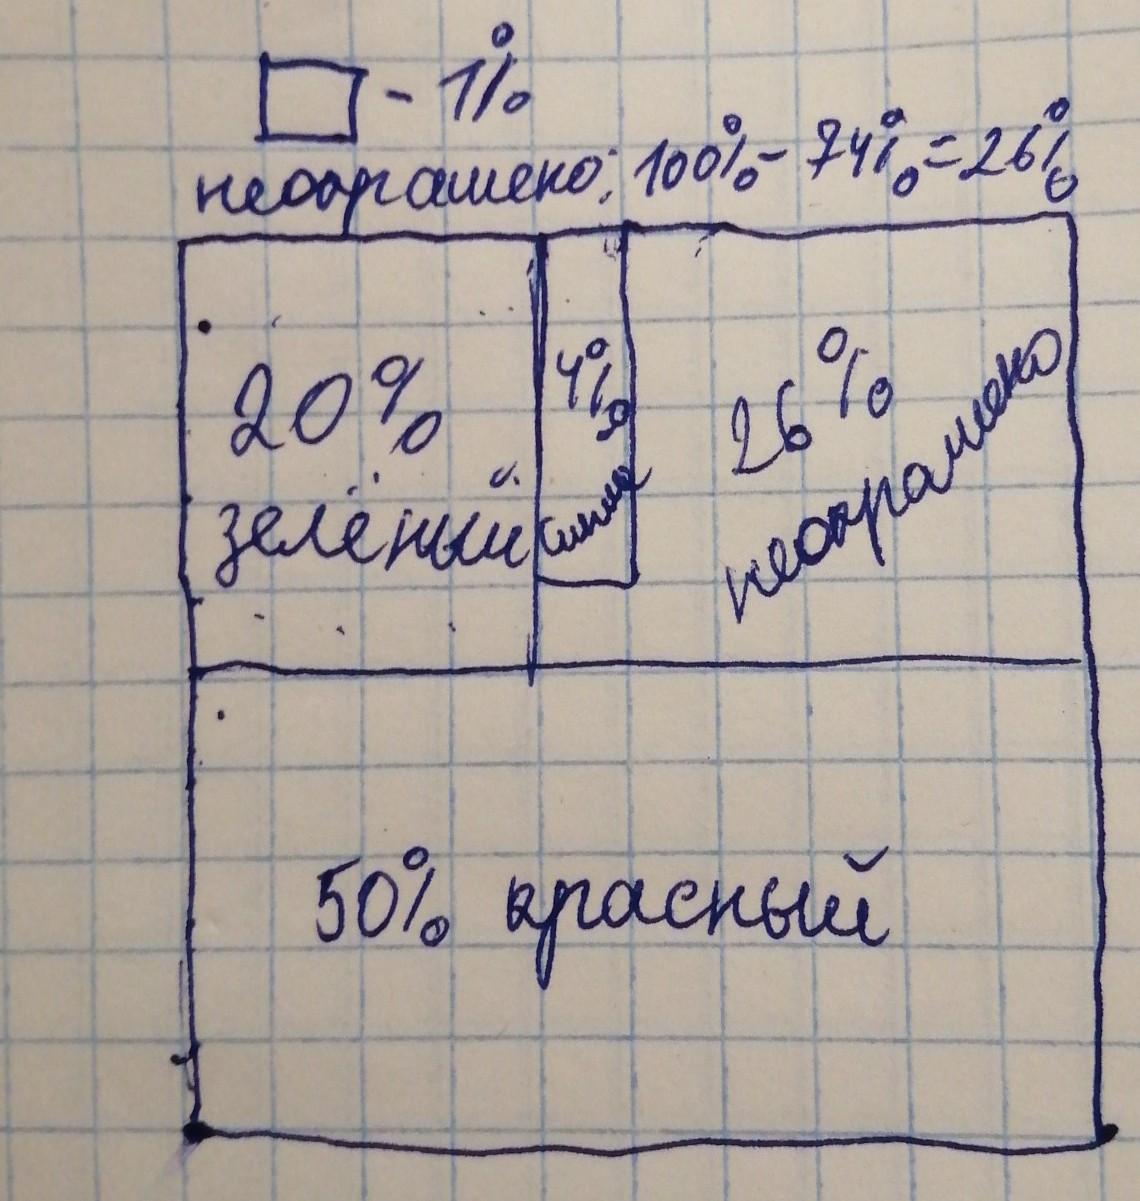 - 1%
неокрашено: 100% - 74% = 26%
20%
зелёный
4%
синий
26%
неокрашено
50% красный